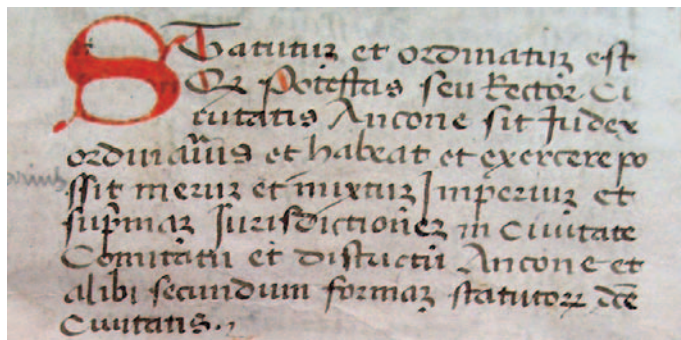 STatutuʒ et ordinatuʒ est
Qʒ Potestas seu Rector Ci
cuitatis Ancone sit Iudex
ordinariʼus et habeat et exercere po
ssit meruʒ et mixtuʒ Imperiuʒ et
sup̄maʒ Iurisdictioneʒ in Ciuitate
Comitatu et districtu Ancone et
alibi secundum formaʒ statutoꝝ dc̄e
Ciuitatis.,